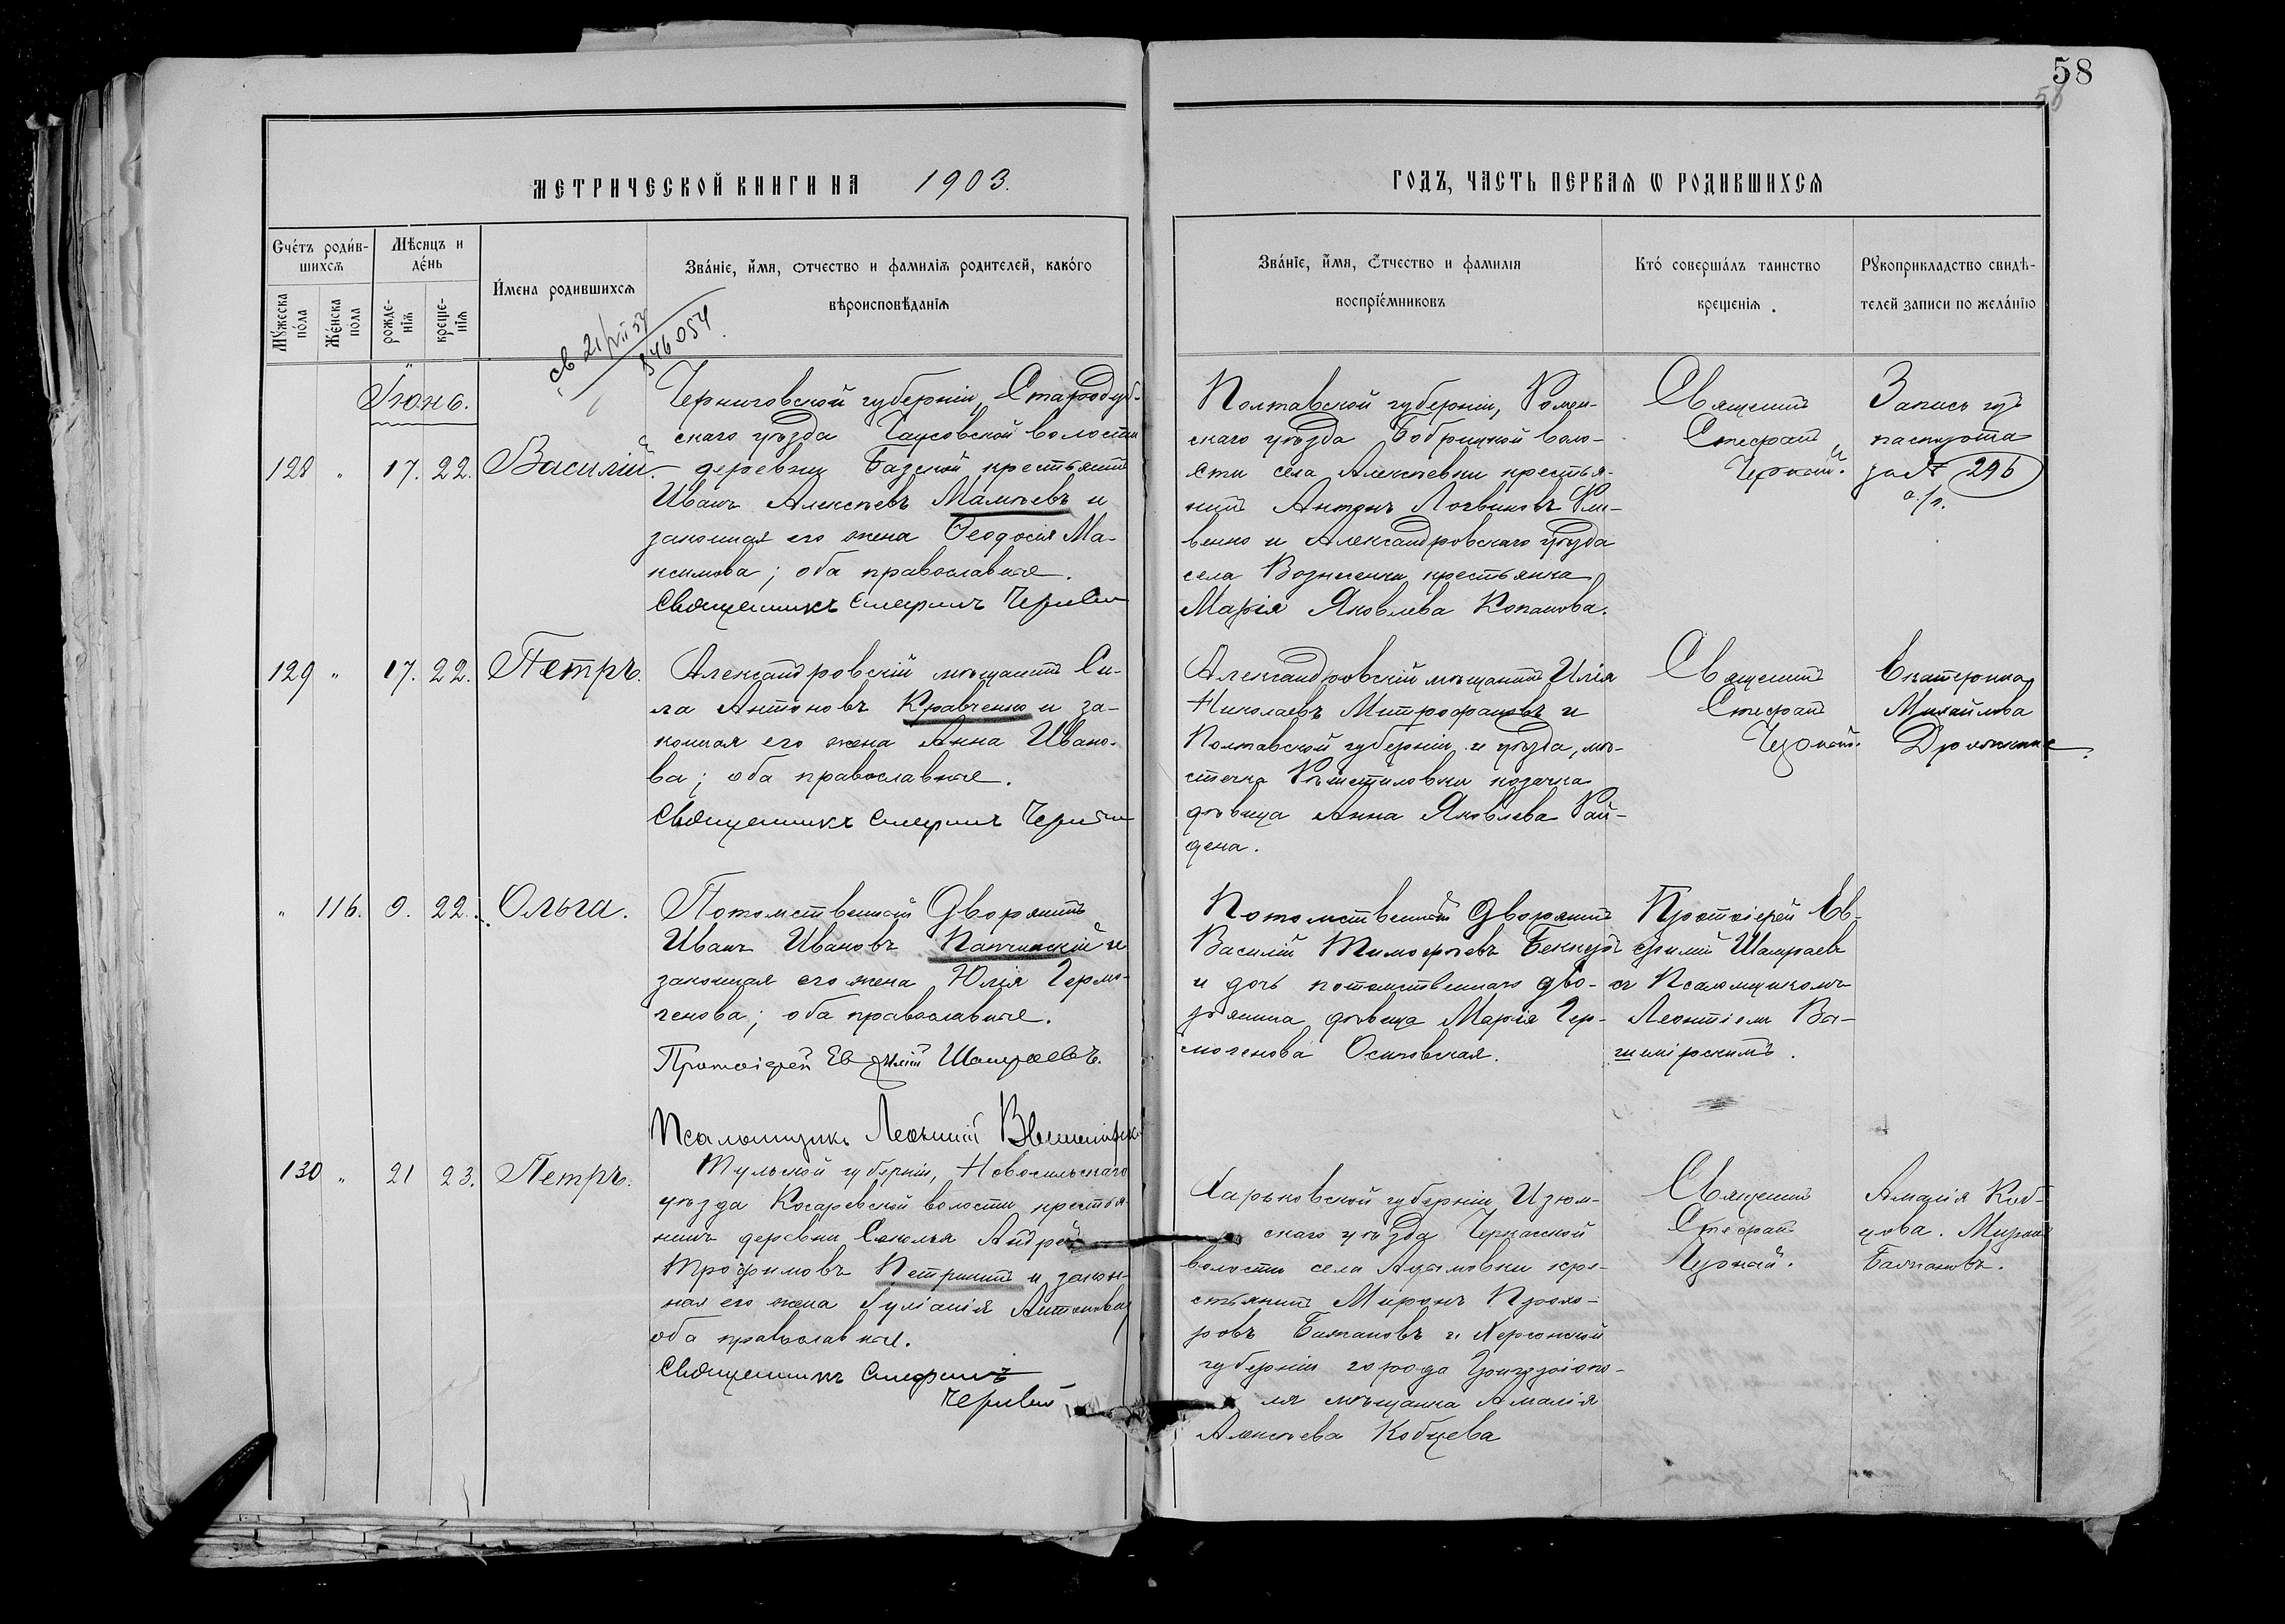 58
58
МЕТРИЧЕСКОЙ КНИГИ НА 1903.
ГОДЪ, ЧАСТЬ ПЕРВАЯ Ѡ РОДИВШИХСЯ
Счетъ родившихся
Мѣсяцъ и день
Имена родившихся
Званіе, имя, отчество и фамилія родителей, какого
вѣроисповѣданія
Мужеска пола
Женска пола
рожденія
крещенія
Званіе, имя, отчество и фамилія
воспріемниковъ
Кто совершалъ таинство
крещенія.
Рукоприкладство свидѣ-
телей записи по желанію
св 21/VII 54
846054
Іюнь.
128 " 17. 22. Василій.
Черниговской губерніи, Стародуб-
скаго уѣзда волости
деревни крестьянинъ
Иванъ Алексѣевъ Мамѣевъ и
законная его жена Ѳеодосія Ма-
ксимова; оба православные.
Священникъ Стефанъ
Полтавской губерніи, Ромен-
скаго уѣзда Бобрицкой воло-
сти села Алексѣевки крестья-
нинъ Антонъ Логвиновъ Кли-
венко и Александровскаго уѣзда
села Вознесенки крестьянка
Марія Яковлева Копанова.
Священникъ
Стефанъ
Запись
паспорта
за № 296
129 " 17. 22. Петръ.
Александровскій мѣщанинъ Си-
ла Антоновъ Кравченко и за-
конная его жена Анна Ивано-
ва; оба православные.
Священникъ Стефанъ
Александровскій мѣщанинъ Илія
Николаевъ Митрофановъ и
Полтавской губерніи и уѣзда, мѣ-
стечка Рѣшетиловки козачка
дѣвица Анна Яковлева Гай-
дена.
Священникъ
Стефанъ
Екатерина
Михайлова
" 116. 9. 22. Ольга.
Потомственный Дворянинъ
Иванъ Ивановъ Папчинскій и
законная его жена Юлія Гермо-
генова; оба православные.
Протоіерей Евфимій Шамраевъ.
Псаломщикъ Леонтій
Потомственный Дворянинъ
Василій Тимофѣевъ
и дочь потомственнаго дво-
рянина дѣвица Марія Гер-
могенова Осиповская.
Протоіерей Ев-
фимій Шамраевъ
съ Псаломщикомъ
Леонтіемъ
130 " 21 23. Петръ.
Тульской губерніи, Новосильскаго
уѣзда Косаревской волости крестья-
нинъ деревни Соколья Андрей
Трофимовъ Петринъ и закон-
ная его жена Іуліанія Антонова;
оба православные.
Священникъ Стефанъ
Харьковской губерніи Изюм-
скаго уѣзда Черкасской
волости села Адамовки кре-
стьянинъ Миронъ Прохо-
ровъ Балкановъ и Херсонской
губерніи города Григоріопо-
ля мѣщанка Амалія
Алексѣева Кобцева
Священникъ
Стефанъ
Амалія Коб-
цова. Миронъ
Балкановъ.